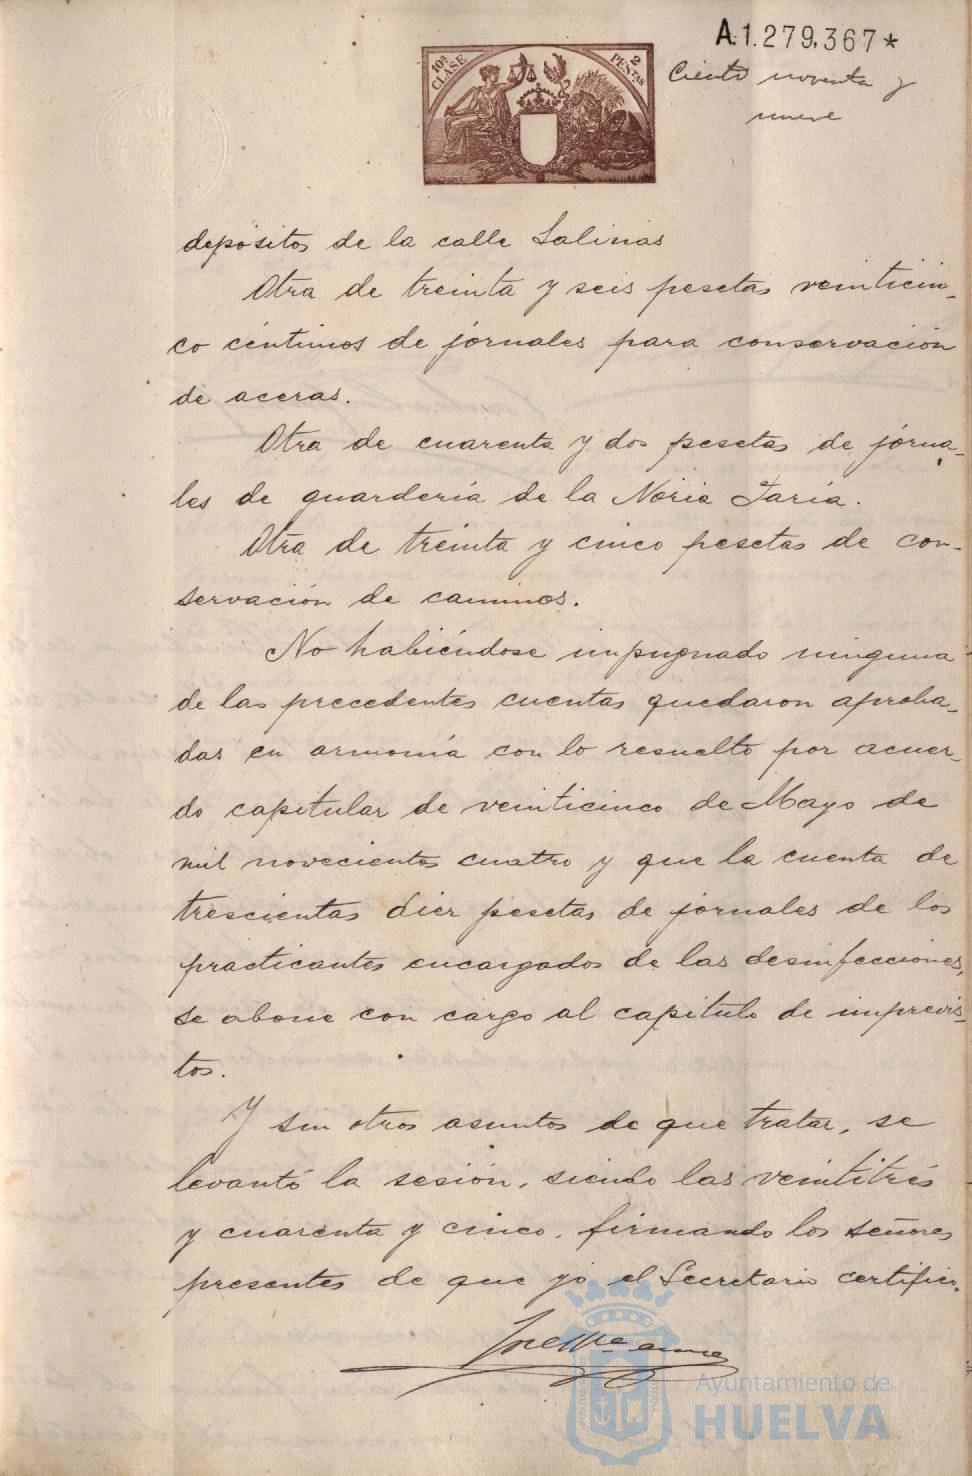 A.1.279,367*
10ª CLASE
2 PESTAS
Ciento noventa y
nueve
depósitos de la calle Salinas
Otra de treinta y seis pesetas veinticin-
co céntimos de jornales para conservación
de aceras.
Otra de cuarenta y dos pesetas de jorna-
les de guardería de la Noria Taria.
Otra de treinta y cinco pesetas de con-
servación de caminos.
No habiéndose impugnado ninguna
de las precedentes cuentas quedaron aproba-
das en armonía con lo resuelto por acuer-
do capitular de veinticinco de Mayo de
mil novecientos cuatro y que la cuenta de
trescientas diez pesetas de jornales de los
practicantes encargados de las desinfecciones,
se abone con cargo al capítulo de imprevis-
tos.
Y sin otros asuntos de que tratar, se
levantó la sesión, siendo las veintitrés
y cuarenta y cinco, firmando los señores
presentes de que yo el Secretario certifico.
Ayuntamiento de
HUELVA